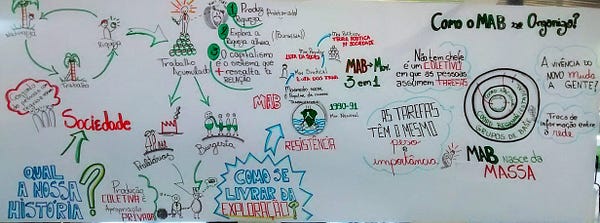 Natureza
Riqueza
Trabalho
Sociedade
QUAL
A NOSSA
HISTÓRIA
?
Trabalho
Acumulado
Proletários
Burguesia
Produção
COLETIVA e
Apropriação
PRIVADA
1 Produz
Riqueza
2 Explora a
Riqueza alheia
3 O capitalismo
é o sistema que
+ ressalta a
RELAÇÃO
COMO SE
LIVRAR DA
EXPLORAÇÃO?
MAB
1990-91
RESISTÊNCIA
MAB → Mov.
3 em 1
AS TAREFAS
TÊM O MESMO
peso e
importância.
Como o MAB se Organiza?
Não tem chefe
é um COLETIVO
em que as pessoas
assumem TAREFAS
GRUPOS DE BASE
MAB nasce da
MASSA
A VIVÊNCIA DO
NOVO muda
A GENTE?
Troca de
informação entre
a rede